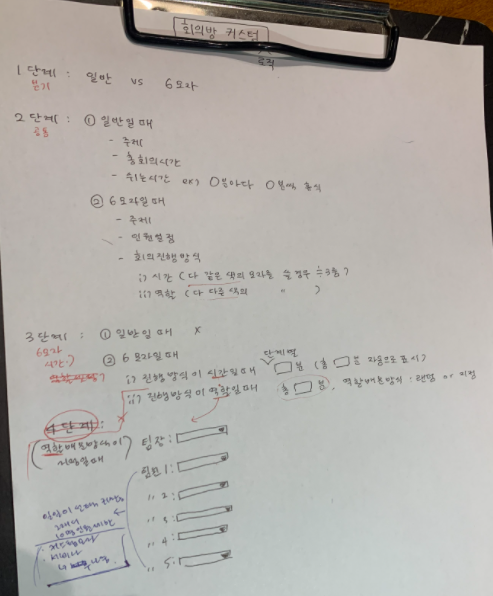 회의방 커스텀
로직
1단계 : 일반 vs 6모자
분기
2단계 : ① 일반일때
공통
- 주제
- 총회의시간
- 쉬는시간 ex) 0분마다 0분씩 휴식
② 6모자일때
- 주제
- 인원설정
- 회의진행방식
i) 시간 (다 같은 색의 모자를 쓸경우
ii) 역할 (다 다른 색의 " )
3단계 : ① 일반일때 x
6모자
시간
② 6모자일때
단계별
i) 진행방식이 시간일때 분 (총 분 자동으로 표시)
ii) 진행방식이 역할일때 총 분, 역할배분방식 : 랜덤 or 지정
4단계 :
(역할배분방식이
지정일때)
팀장 :
팀원 1 :
" 2 :
" 3 :
" 4 :
" 5 :